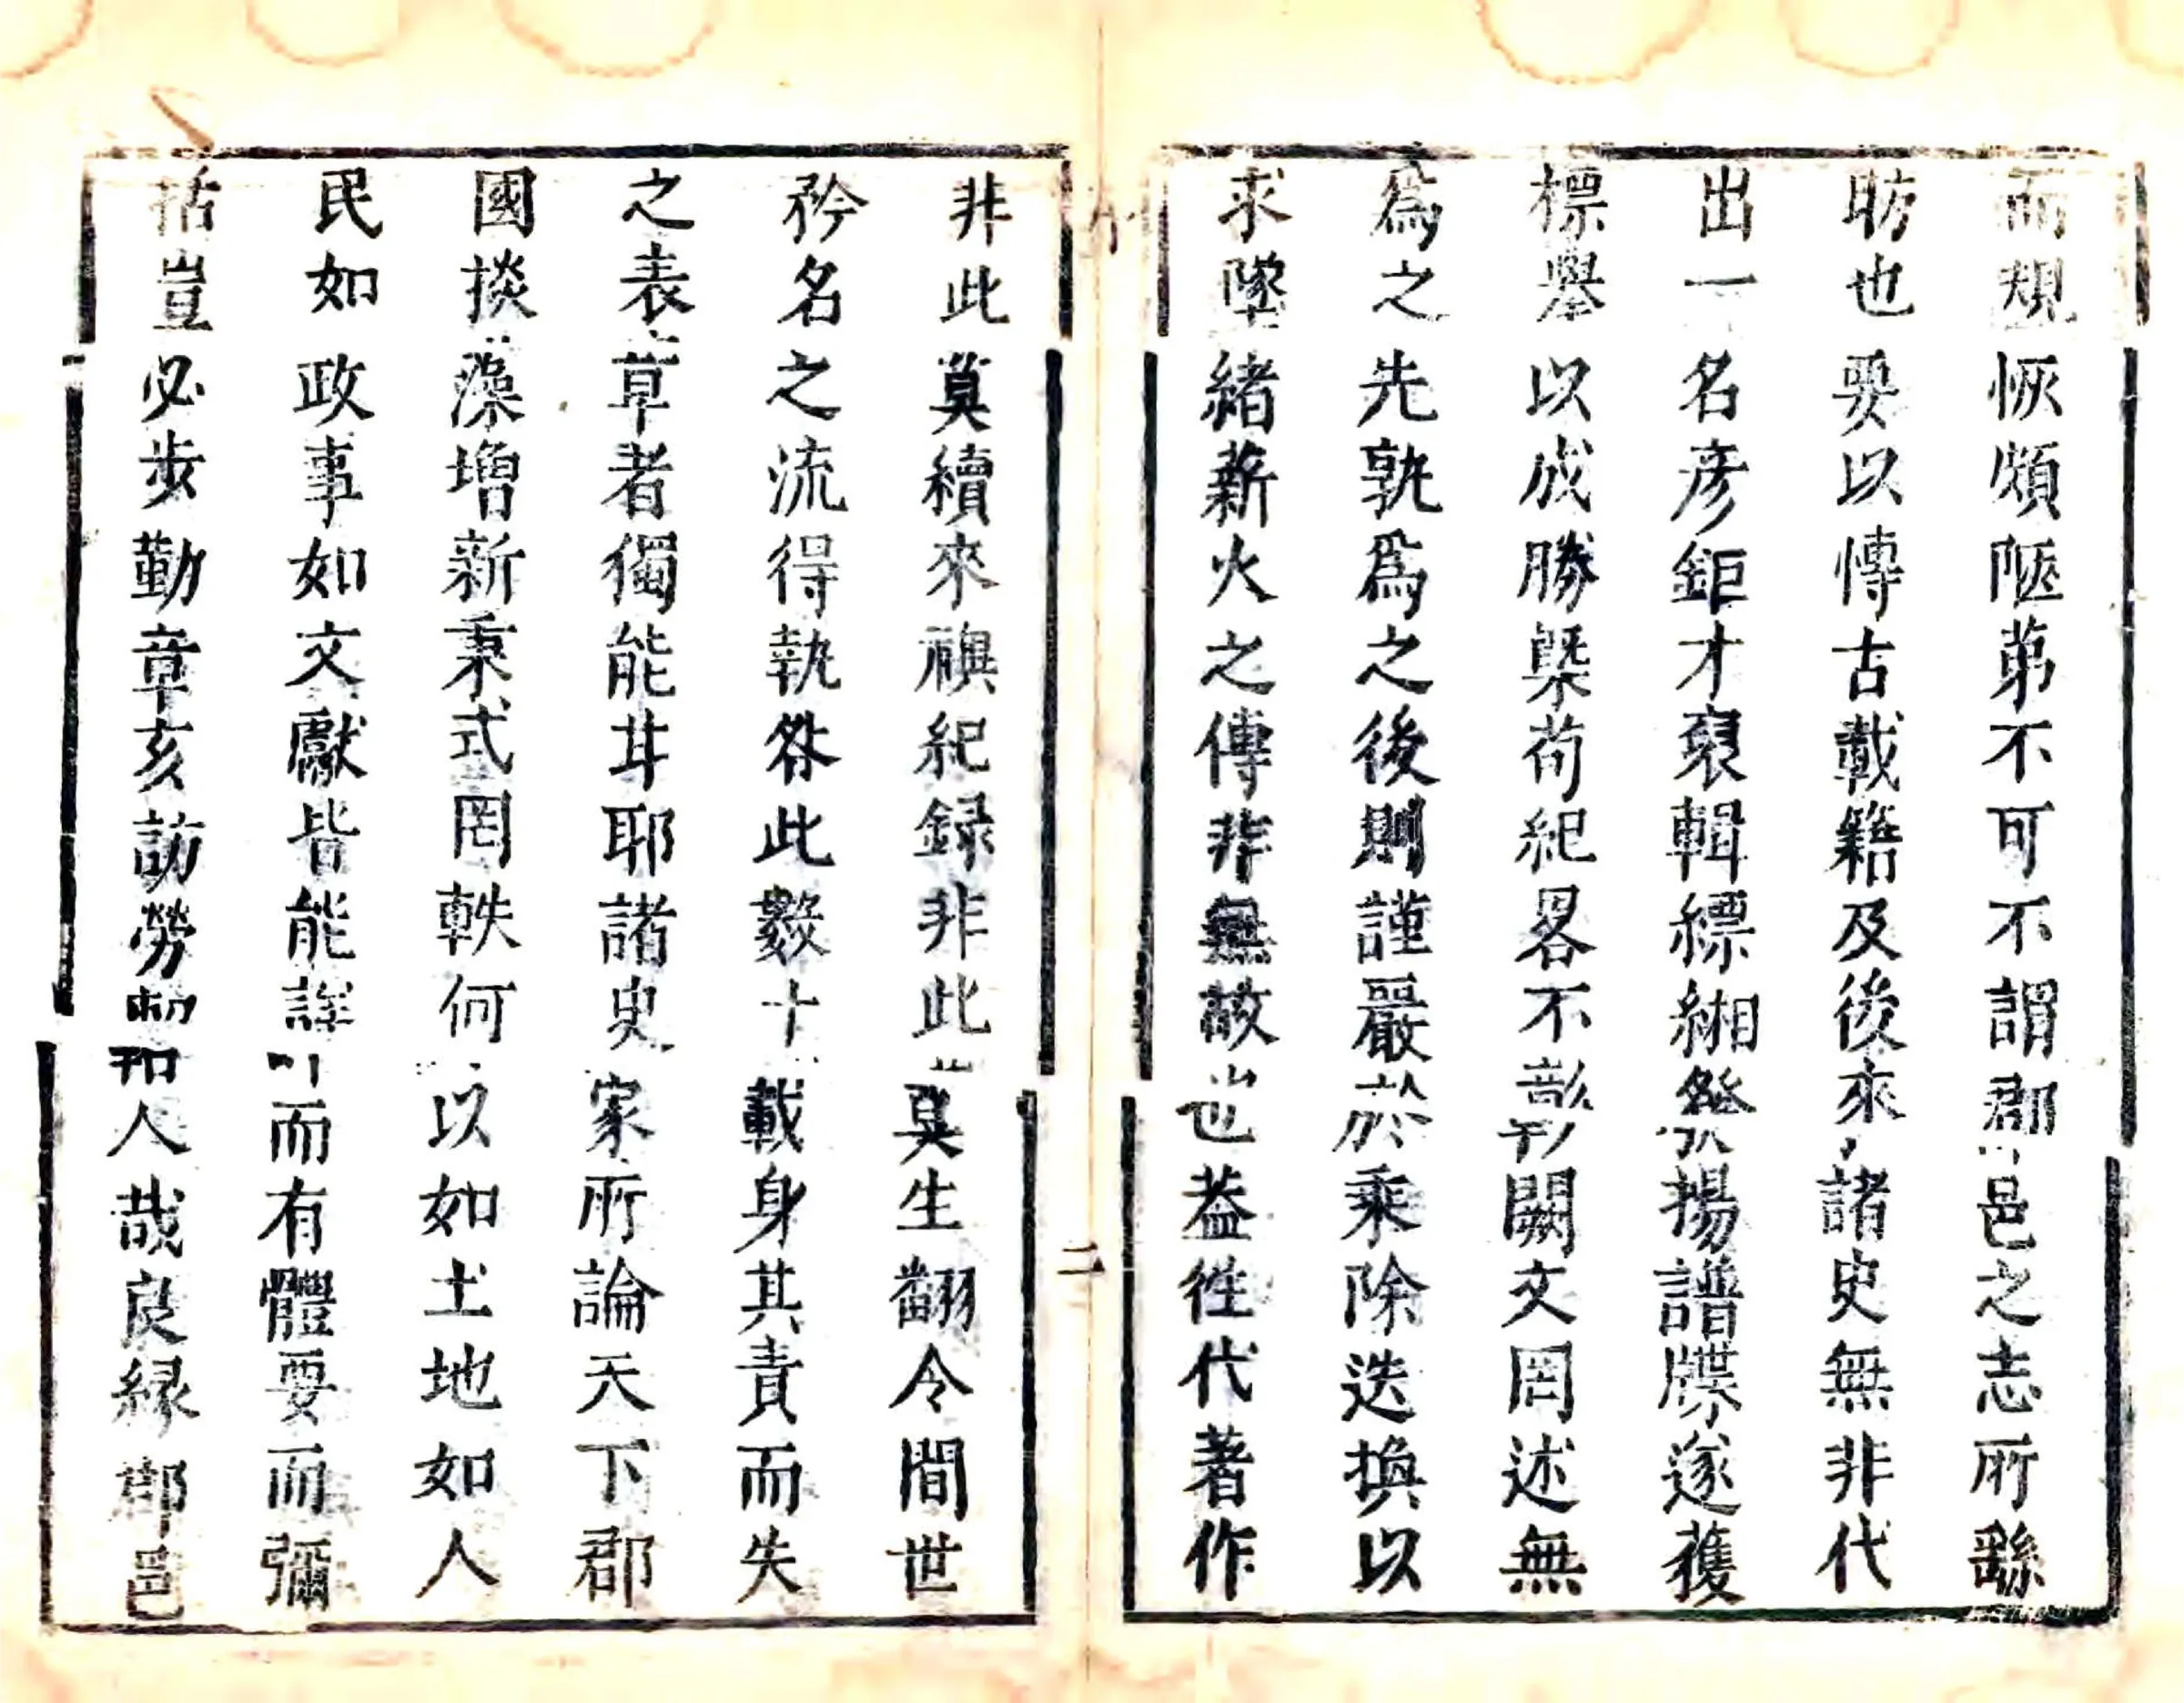 而規恢頗陋苐不可不謂郡邑之志所繇
昉也要以慱古載籍及後來諸史無非代
出一名彦鉅才裒輯縹緗發揚譜牒遂獲
標舉以成勝槩苟紀畧不彰闕文罔述無
爲之先孰爲之後則謹嚴於乘除迭換以
求墜緒薪火之傳非無故也葢徃代著作
二
非此莫續來禩紀録非此莫生翻令間世
矜名之流得執咎此數十載身其責而失
之表章者獨能甘耶諸史家所論天下郡
國掞藻增新秉式罔軼何以如土地如人
民如政事如文獻皆能詳而有體要而彌
括豈必步勤章亥訪勞人哉良縁郡邑